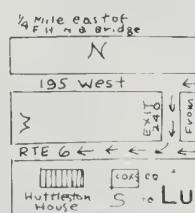 1/4 Mile east of
F H N B Bridge
N
195 West
W
EXIT
240
From
RTE 6
COX'S CO
Huttleston
House
S
to
LU